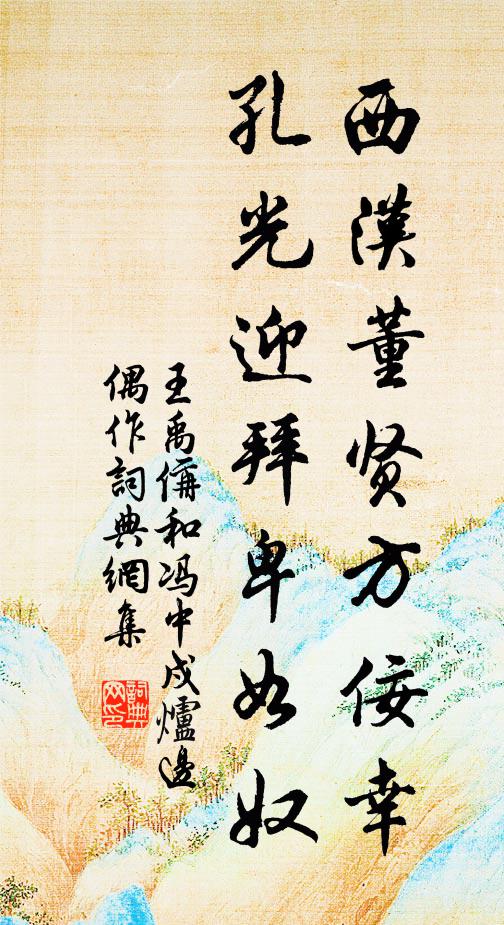 西漢董贤方佞幸
孔光迎拜卑如奴
王禹偁和冯中戍爐邊
偶作詞典網集
詞典
网印